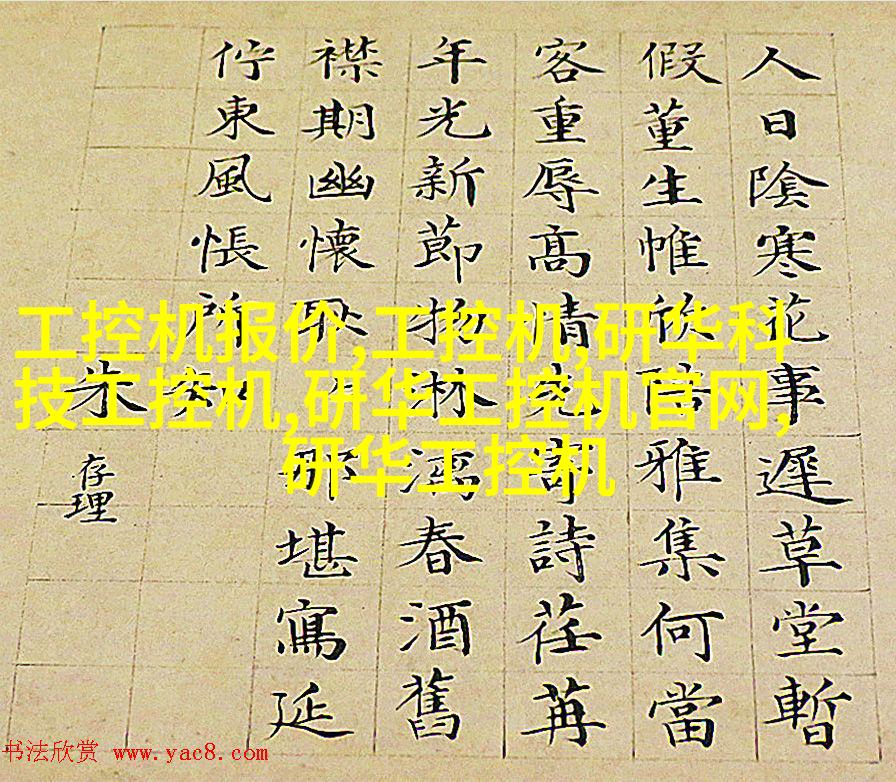 人日陰寒花事遲草堂暫
假董生帷欣陪雅集何當
客重辱高情寄詩荏苒
年光新節物淋漓春酒舊
襟期幽懷耿々那堪寫延
佇東風悵所知
朱存理
工控机报价,工控机,研华科
技工控机,研华工控机官网,
研华工控机
书法欣赏 www.yac8.com